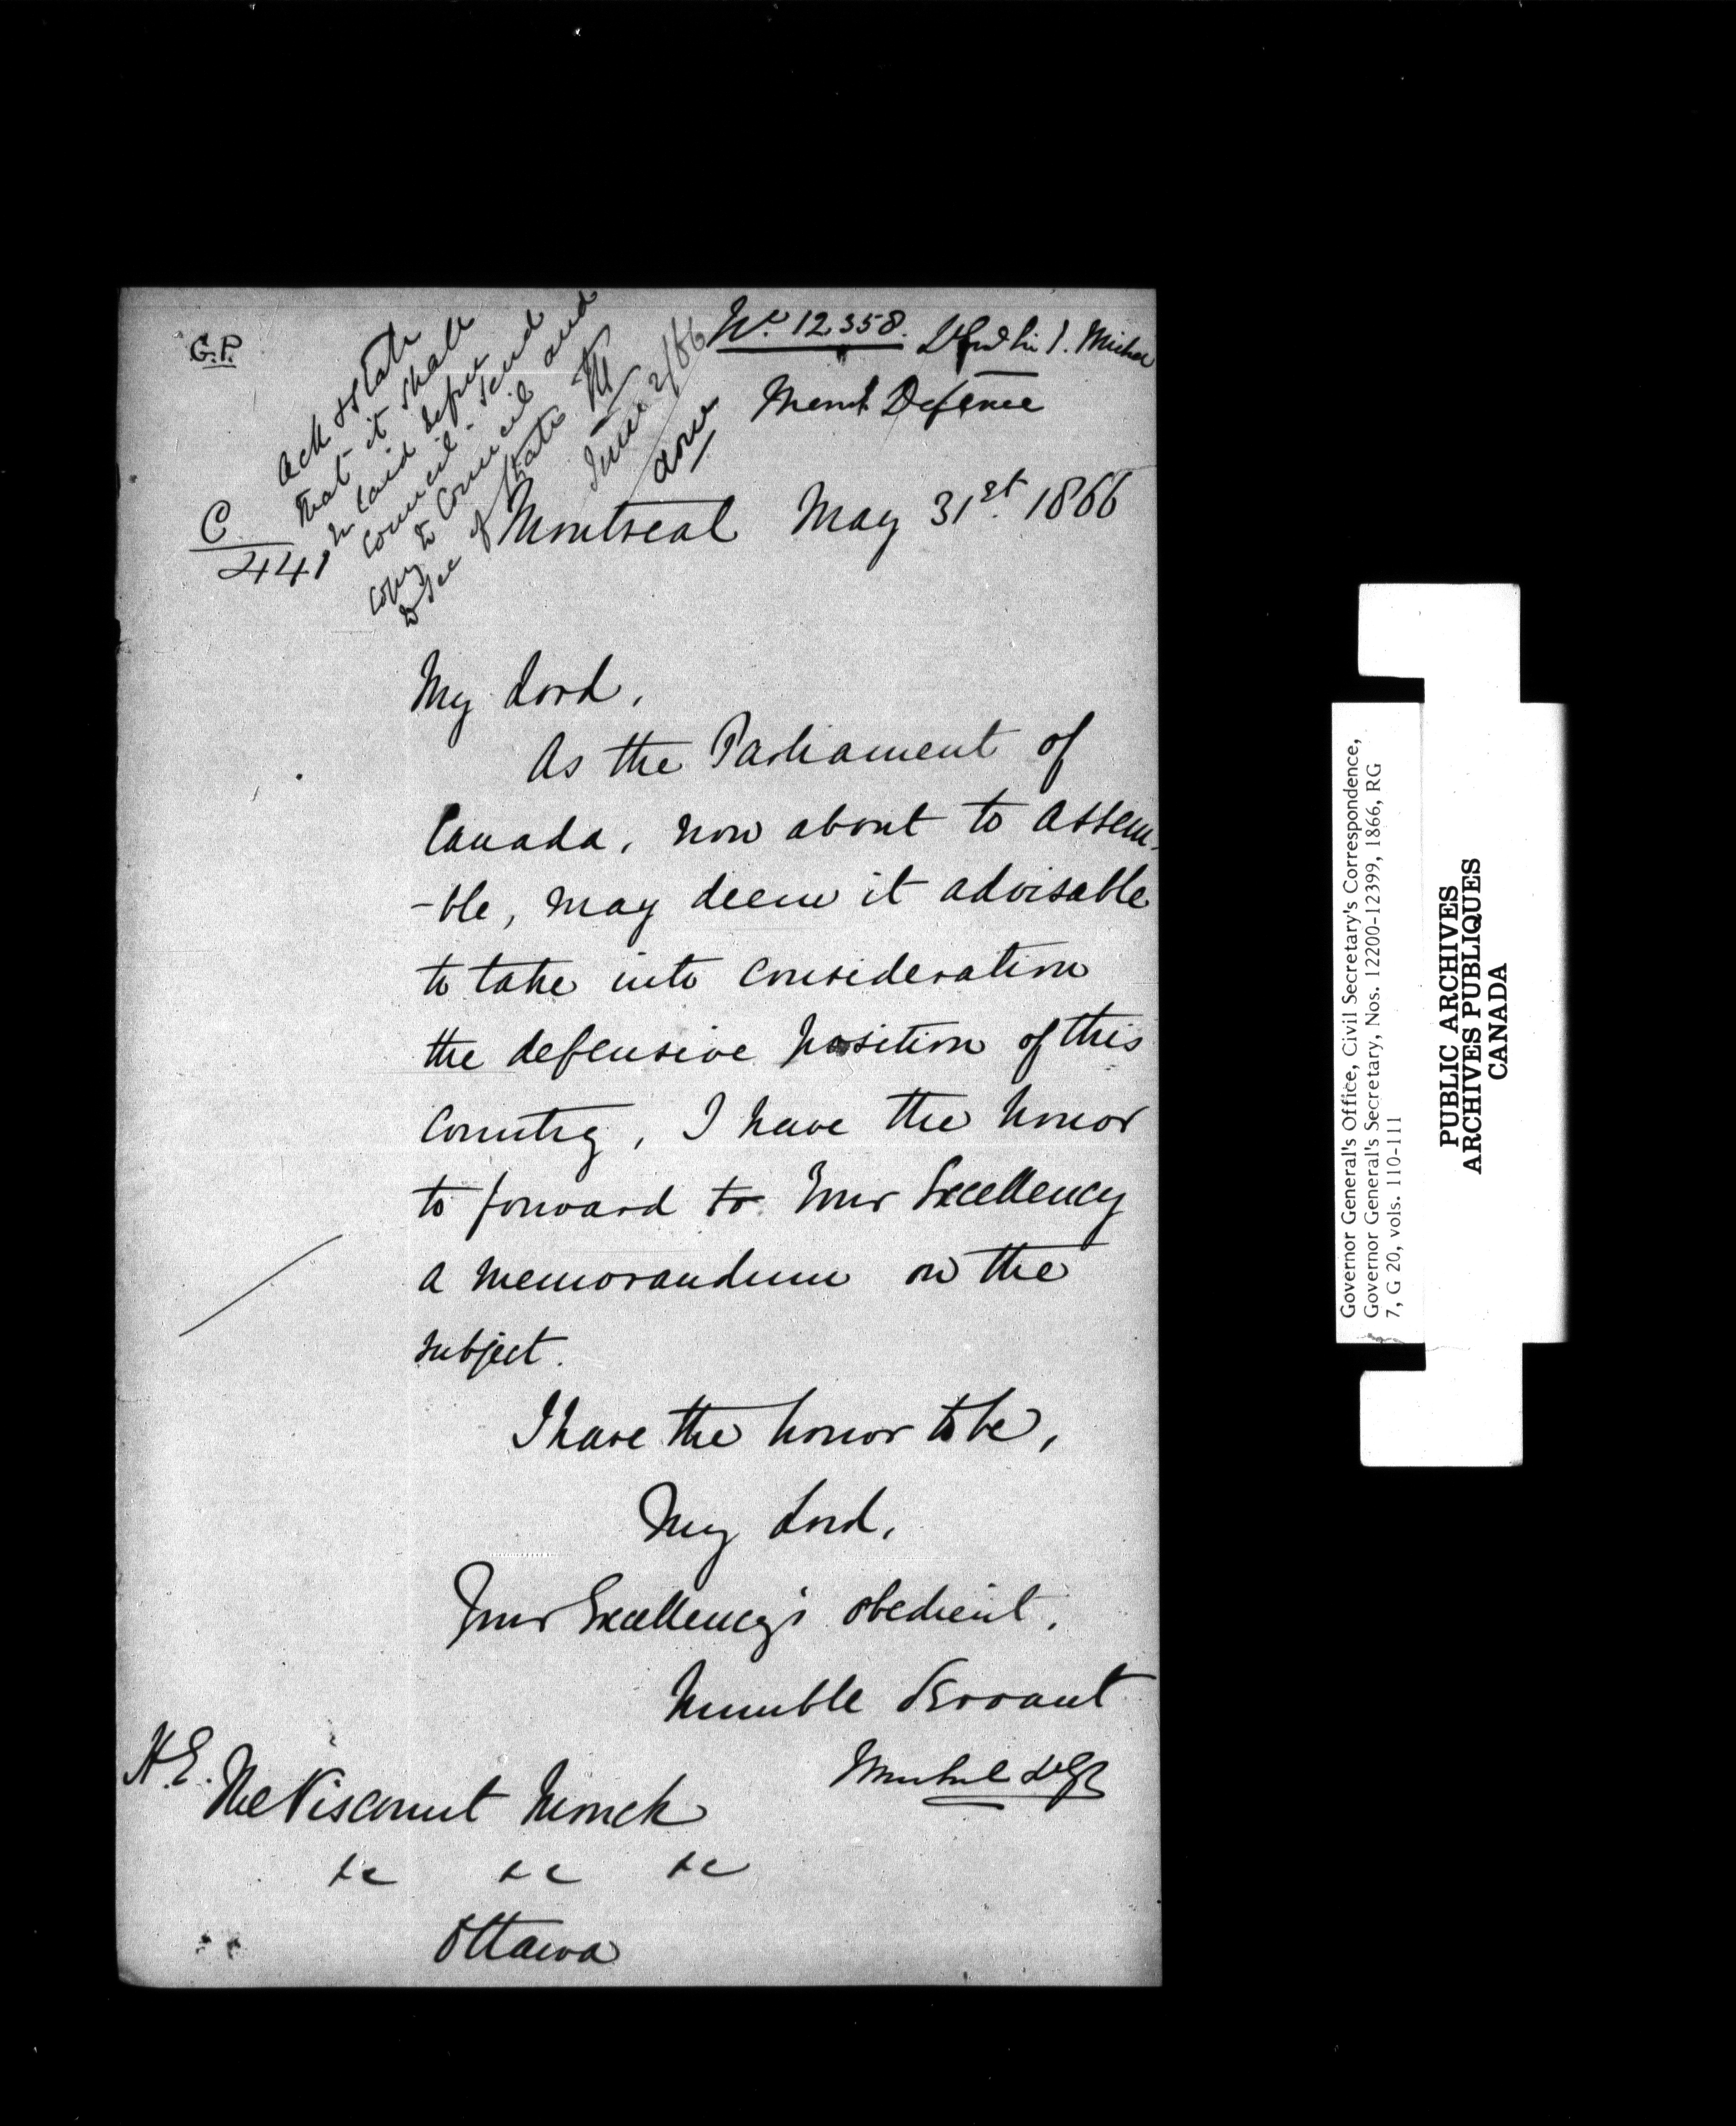 G.P.
No. 12358. Sir J. Michel
Memh Defence
Ack & state
that it shall
be laid before
Council. Send
copy to Council and
to Sec of State M
June 2/66
done
C
441
Montreal May 31st. 1866
My Lord,
As the Parliament of
Canada, now about to assem-
-ble, may deem it advisable
to take into consideration
the defensive position of this
Country, I have the honor
to forward to Your Excellency
a memorandum on the
subject.
I have the honor to be,
My Lord,
Your Excellency's obedient,
humble Servant
Michel LtGl
H.E.
The Viscount Monck
&c &c &c
Ottawa
Governor General's Office, Civil Secretary's Correspondence,
Governor General's Secretary, Nos. 12200-12399, 1866, RG
7, G 20, vols. 110-111
PUBLIC ARCHIVES
ARCHIVES PUBLIQUES
CANADA